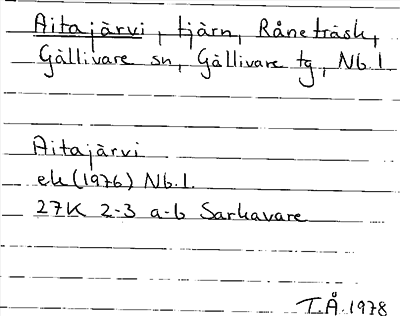 Aitajärvi, tjärn, Råneträsk,
Gällivare sn, Gällivare tg, Nb.l.
Aitajärvi
ek (1976) Nb.l.
27K 2-3 a-b Sarkavare
T.Å. 1978